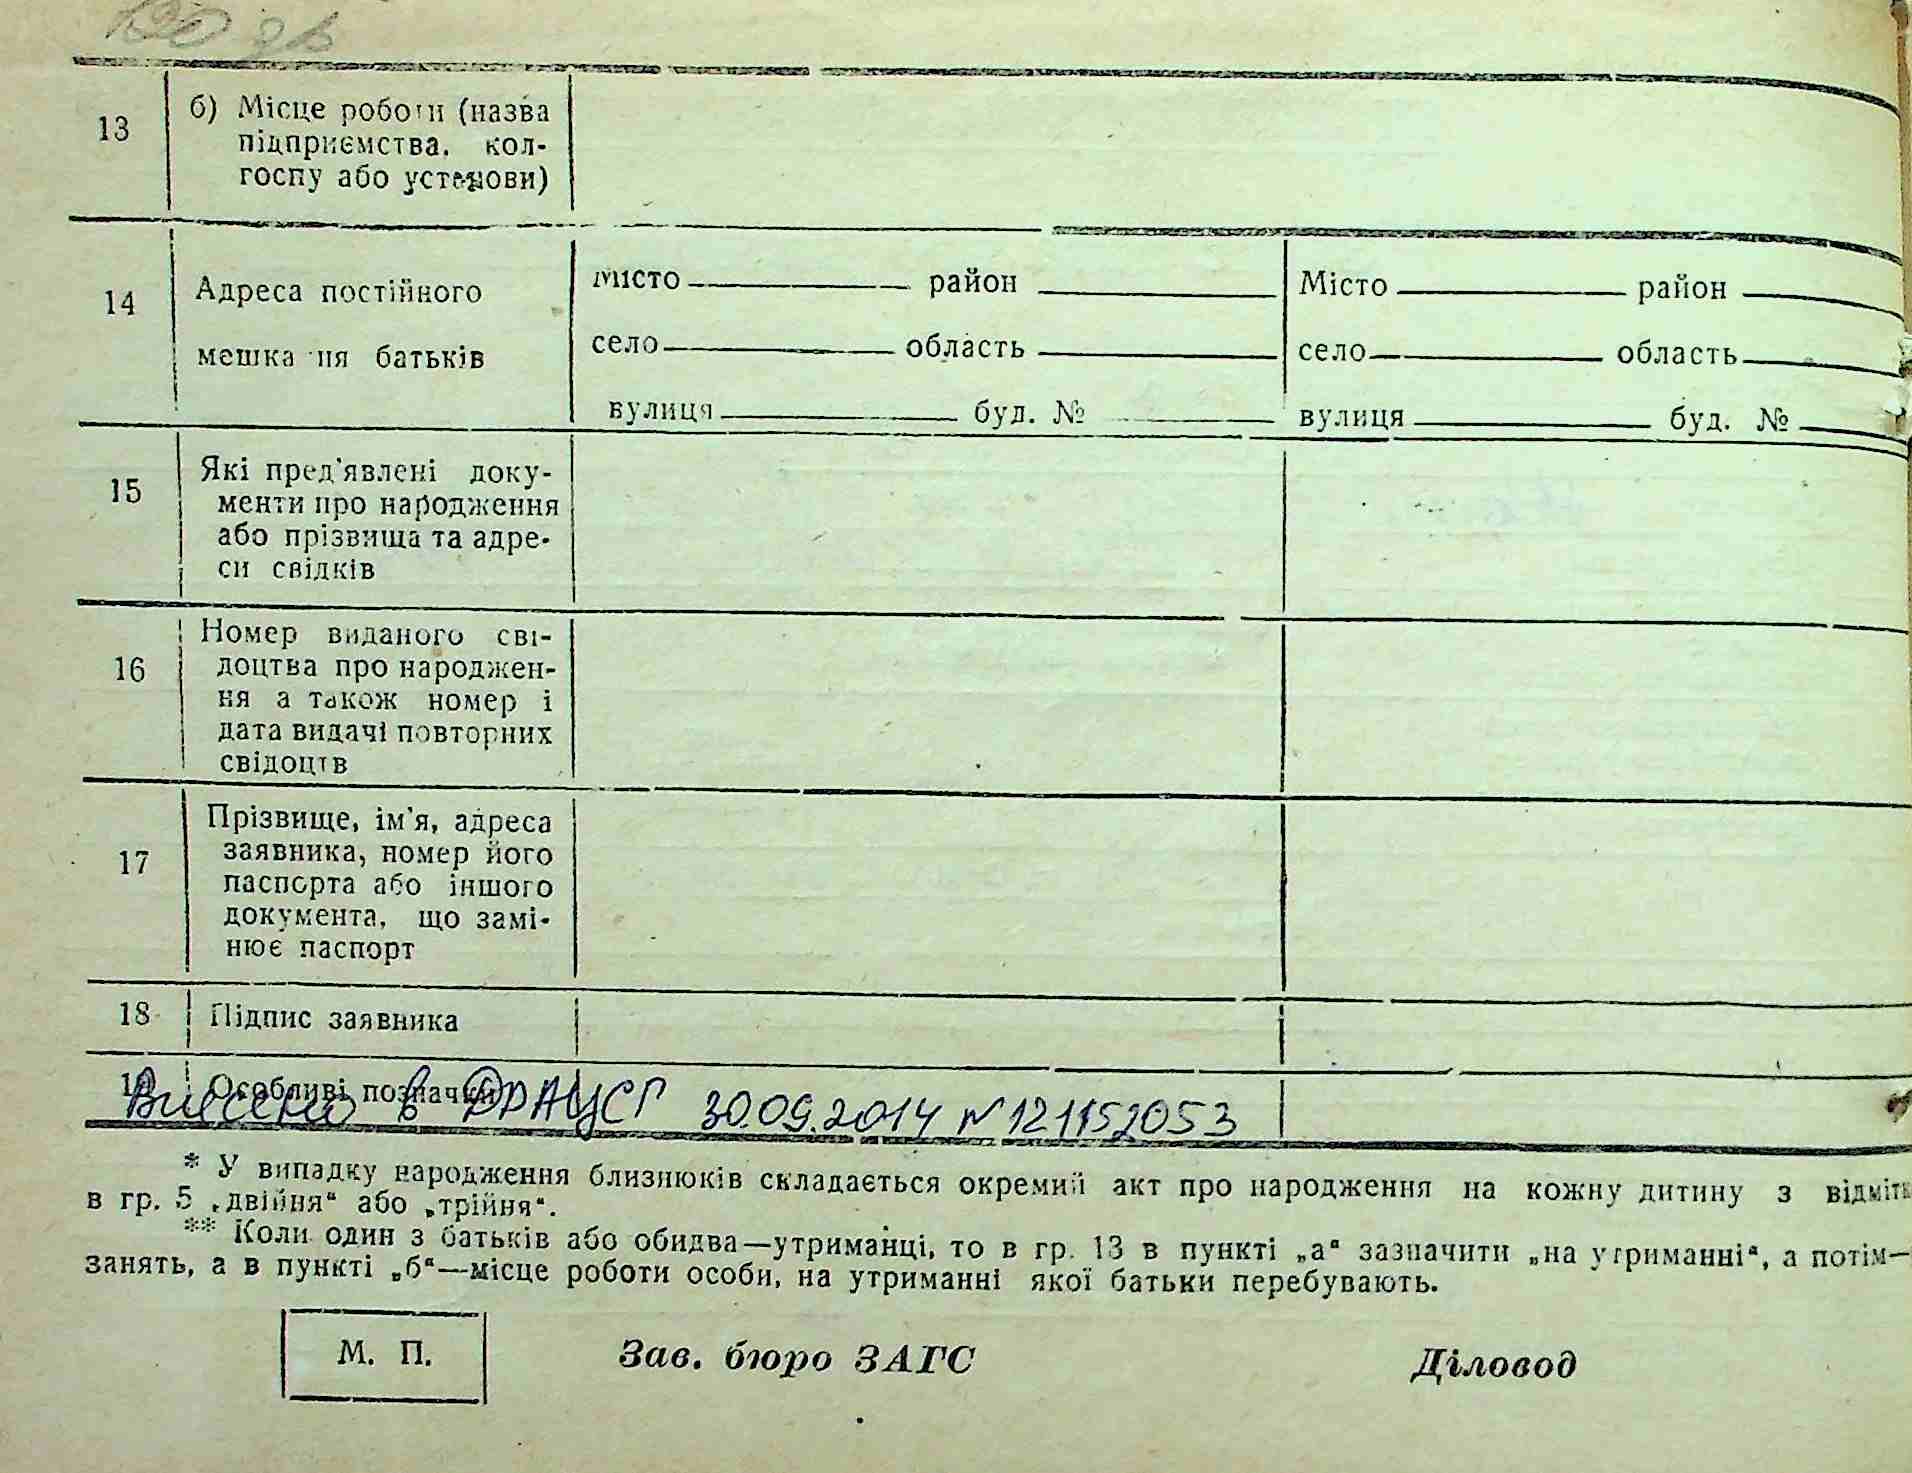 13
б) Місце роботи (назва
підприємства, кол-
госпу або установи)
14
Адреса постійного
мешкання батьків
Місто район
село область
вулиця буд. №
Місто район
село область
вулиця буд. №
15
Які пред'явлені доку-
менти про народження
або прізвища та адре-
си свідків
16
Номер виданого сві-
доцтва про народжен-
ня а також номер і
дата видачі повторних
свідоцтв
17
Прізвище, ім'я, адреса
заявника, номер його
паспорта або іншого
документа, що замі-
нює паспорт
18
Підпис заявника
19
Особливі позначки
Внесено в ДРАЦСГ 30.09.2014 N121152053
* У випадку народження близнюків складається окремий акт про народження на кожну дитину з відмітк
в гр. 5 „двійня“ або „трійня“.
** Коли один з батьків або обидва—утриманці, то в гр. 13 в пункті „а“ зазначити „на утриманні“, а потім—
занять, а в пункті „б“—місце роботи особи, на утриманні якої батьки перебувають.
М. П.
Зав. бюро ЗАГС
Діловод